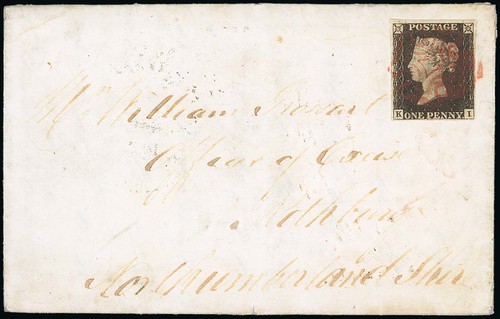 POSTAGE
K I
ONE PENNY
Mr William
Officer of Excise
Rothbury
Northumberland Shire